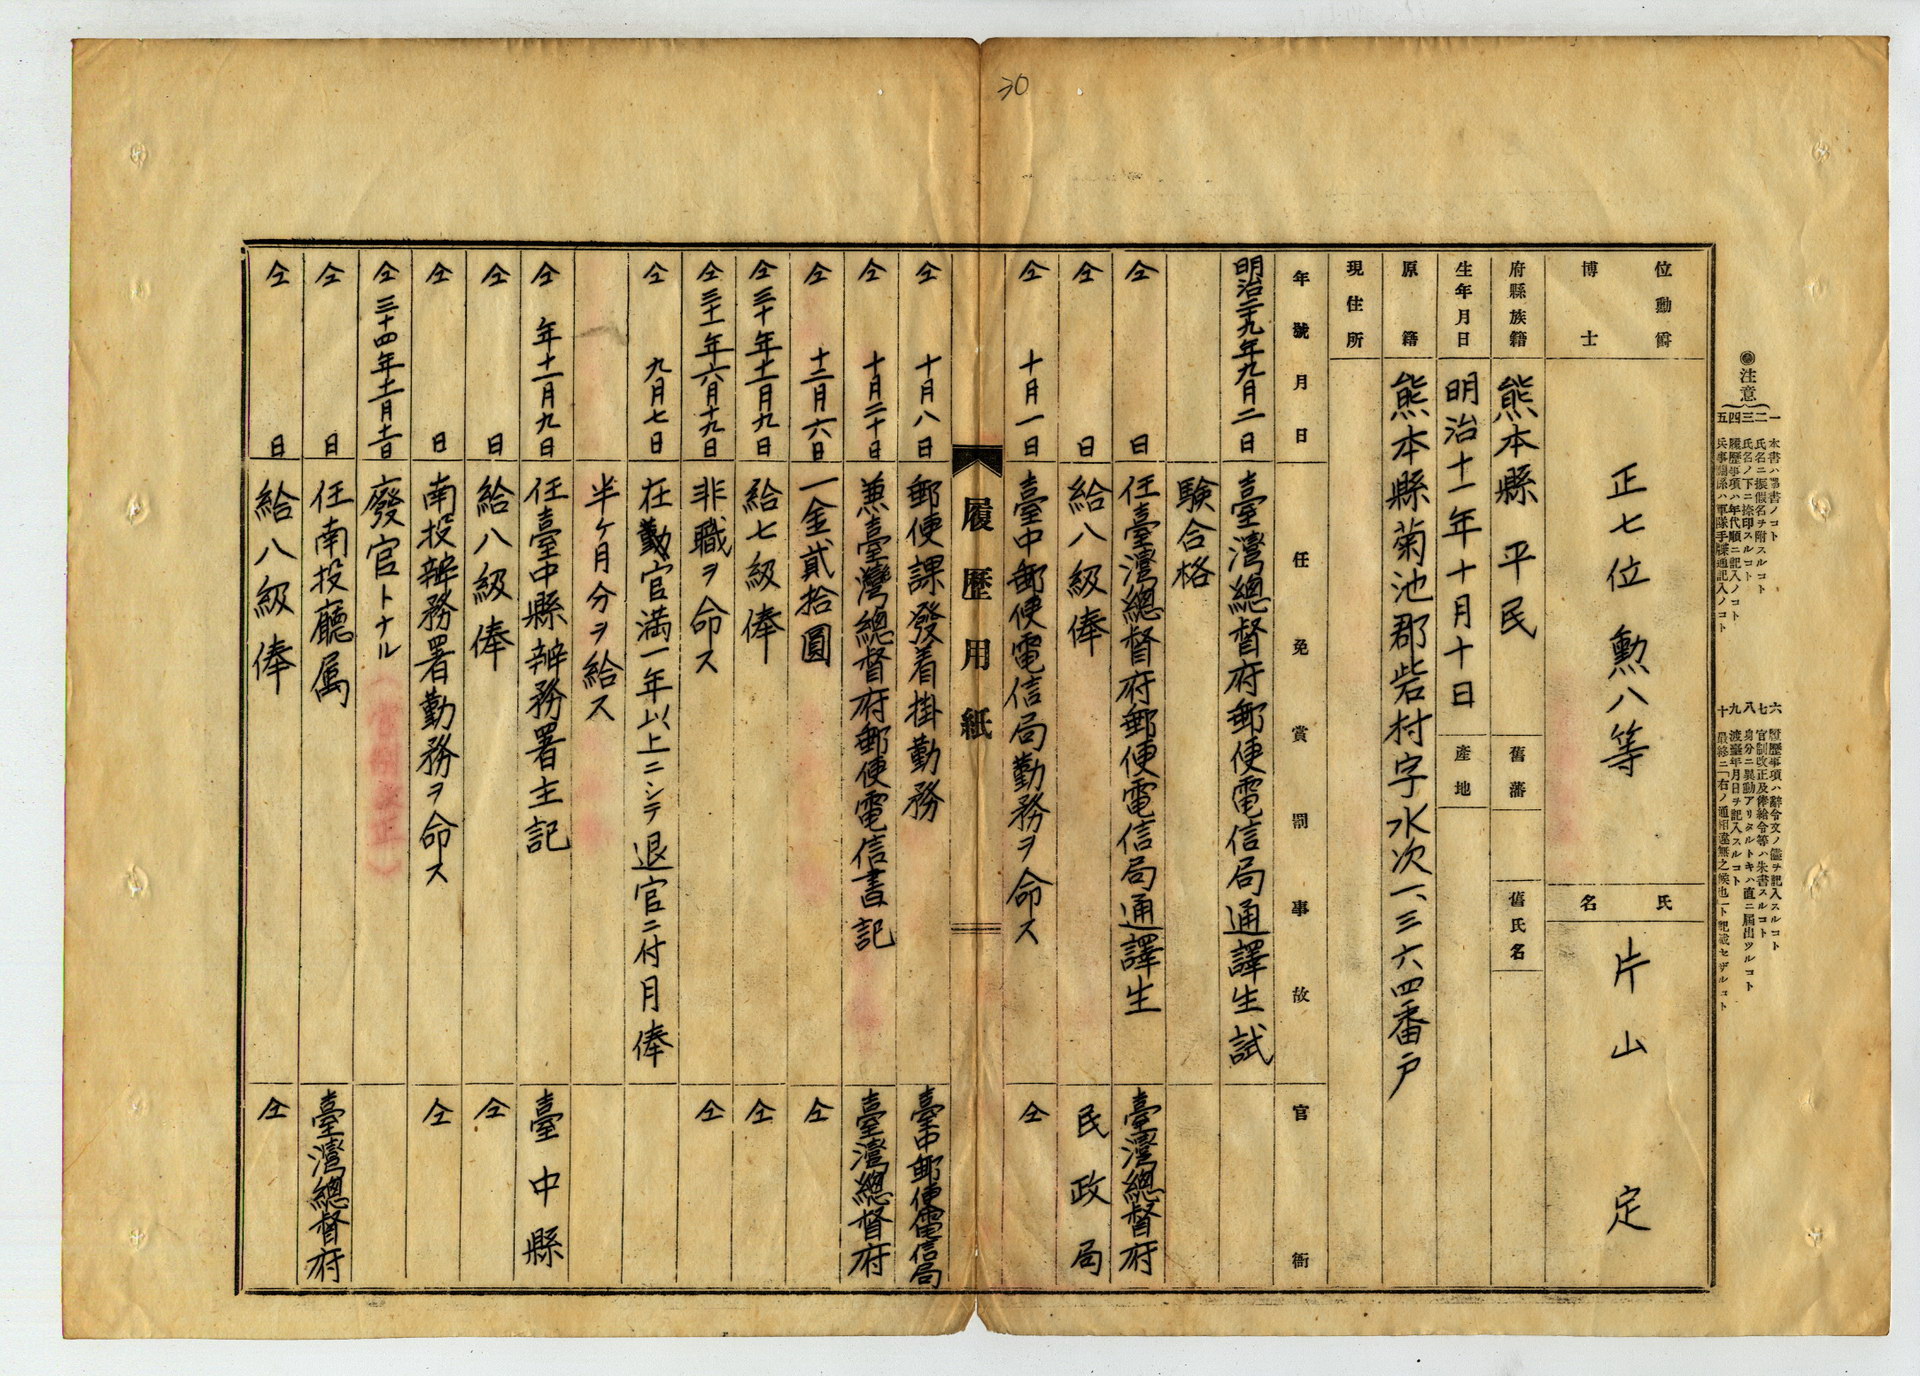 30
◎注意
一 本書ハ墨書ノコト
二 氏名ニ振假名ヲ附スルコト
三 氏名ノ下ニ捺印スルコト
四 履歷事項ハ年代順ニ記入ノコト
五 兵事關係ハ軍隊手牒通記入ノコト
六 履歷事項ハ辭令文ノ儘ヲ記入スルコト
七 官制改正及俸給令等ハ朱書スルコト
八 身分ニ異動アリタルトキハ直ニ屆出ツルコト
九 渡臺年月日ヲ記入スルコト
十 最終ニ「右ノ通相違無之候也」ト記載セザルコト
位勳爵
博士
正七位勲八等
氏名
片山定
府縣族籍
熊本縣平民
舊藩
舊氏名
生年月日
明治十一年十月十日
產地
原籍
熊本縣菊池郡砦村字水次一、三六四番戸
現住所
年號月日 任免賞罰事故 官衙
明治二十九年九月二日 臺灣總督府郵便電信局通譯生試
驗合格
仝 日 任臺灣總督府郵便電信局通譯生 臺灣總督府
仝 日 給八級俸 民政局
仝 十月一日 臺中郵便電信局勤務ヲ命ス 仝
履歷用紙
仝 十月八日 郵便課發着掛勤務 臺中郵便電信局
仝 十月二十日 兼臺灣總督府郵便電信書記 臺灣總督府
仝 十二月六日 一金貳拾圓 仝
仝三十年十一月九日 給七級俸 仝
仝三十一年六月十九日 非職ヲ命ス 仝
仝 九月七日 在勤官満一年以上ニシテ退官ニ付月俸
半ヶ月分ヲ給ス
仝 年十一月九日 任臺中縣辨務署主記 臺中縣
仝 日 給八級俸 仝
仝 日 南投辨務署勤務ヲ命ス 仝
仝三十四年十一月十一日 廢官トナル
仝 日 任南投廳属 臺灣總督府
仝 日 給八級俸 仝